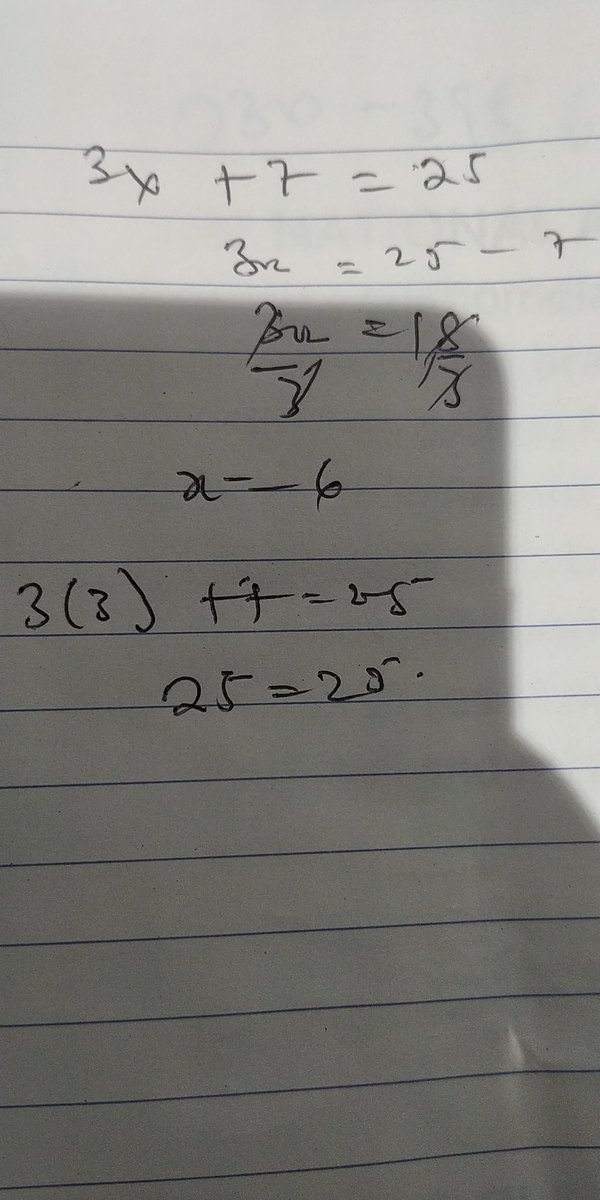 3x + 7 = 25
3x = 25 - 7
3x/3 = 18/3
x = 6
3(3) + 7 = 25
25 = 25.